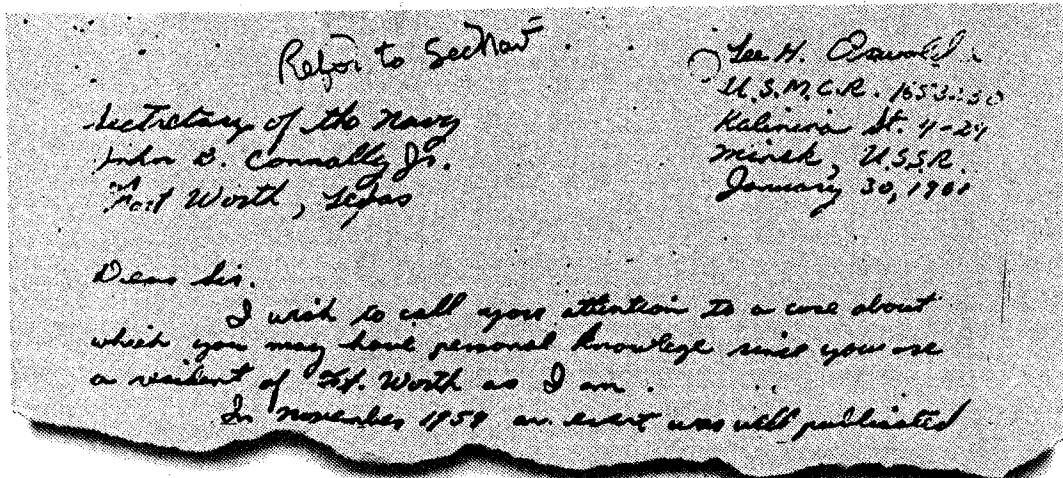 Refer to SecNav.
Lee H. Oswald
U.S.M.C.R. 1653230
Kalinina St. 4-24
Minsk, U.S.S.R.
January 30, 1961
Secretary of the Navy
John B. Connally Jr.
Fort Worth, Texas
Dear Sir.
I wish to call your attention to a case about
which you may have personal knowlege since you are
a resident of Ft. Worth as I am.
In November 1959 an event was well publicated